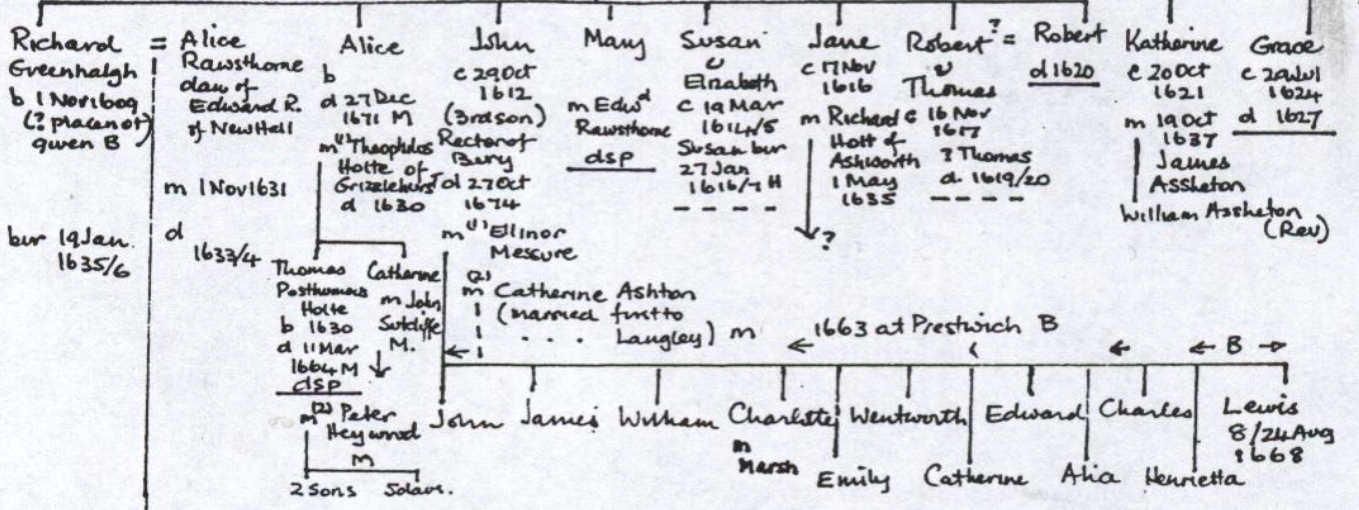 Richard
Greenhalgh
b 1 Nov 1609
(? place not)
given B
bur 19 Jan.
1635/6
=
Alice
Rawsthorne
dau of
Edward R.
of New Hall
m 1 Nov 1631
d
1633/4
Alice
b
d 27 Dec
1671 M
m (1) Theophilus
Holte of
Grizzlehurst
d 1630
Thomas
Posthumous
Holte
b 1630
d 11 Mar
1664 M
dsp
Catherine
m John
Sutcliffe
M.
m (2) Peter
Heywood
M
2 Sons
5 daus.
John
c 29 Oct
1612
(3rd son)
Rector of
Bury
d 27 Oct
1674
m (1) Ellinor
Messure
(2)
m Catherine Ashton
(married first to
. . . Langley) m
1663 at Prestwich B
← B →
Mary
m Edwd
Rawsthorne
dsp
Susan
Elizabeth
c 19 Mar
1614/5
Susan bur
27 Jan
1616/7 H
Jane
c 17 Nov
1616
m Richard
Holt of
Ashworth
1 May
1635
?
Robert ? =
Thomas
c 16 Nov
1617
? Thomas
d. 1619/20
Robert
d 1620
Katherine
c 20 Oct
1621
m 19 Oct
1637
James
Assheton
William Assheton
(Rev)
Grace
c 29 Jul
1624
d 1627
John
James
William
Charlotte
m
Marsh
Wentworth
Edward
Charles
Lewis
8/24 Aug
1668
Emily
Catherine
Alia
Henrietta